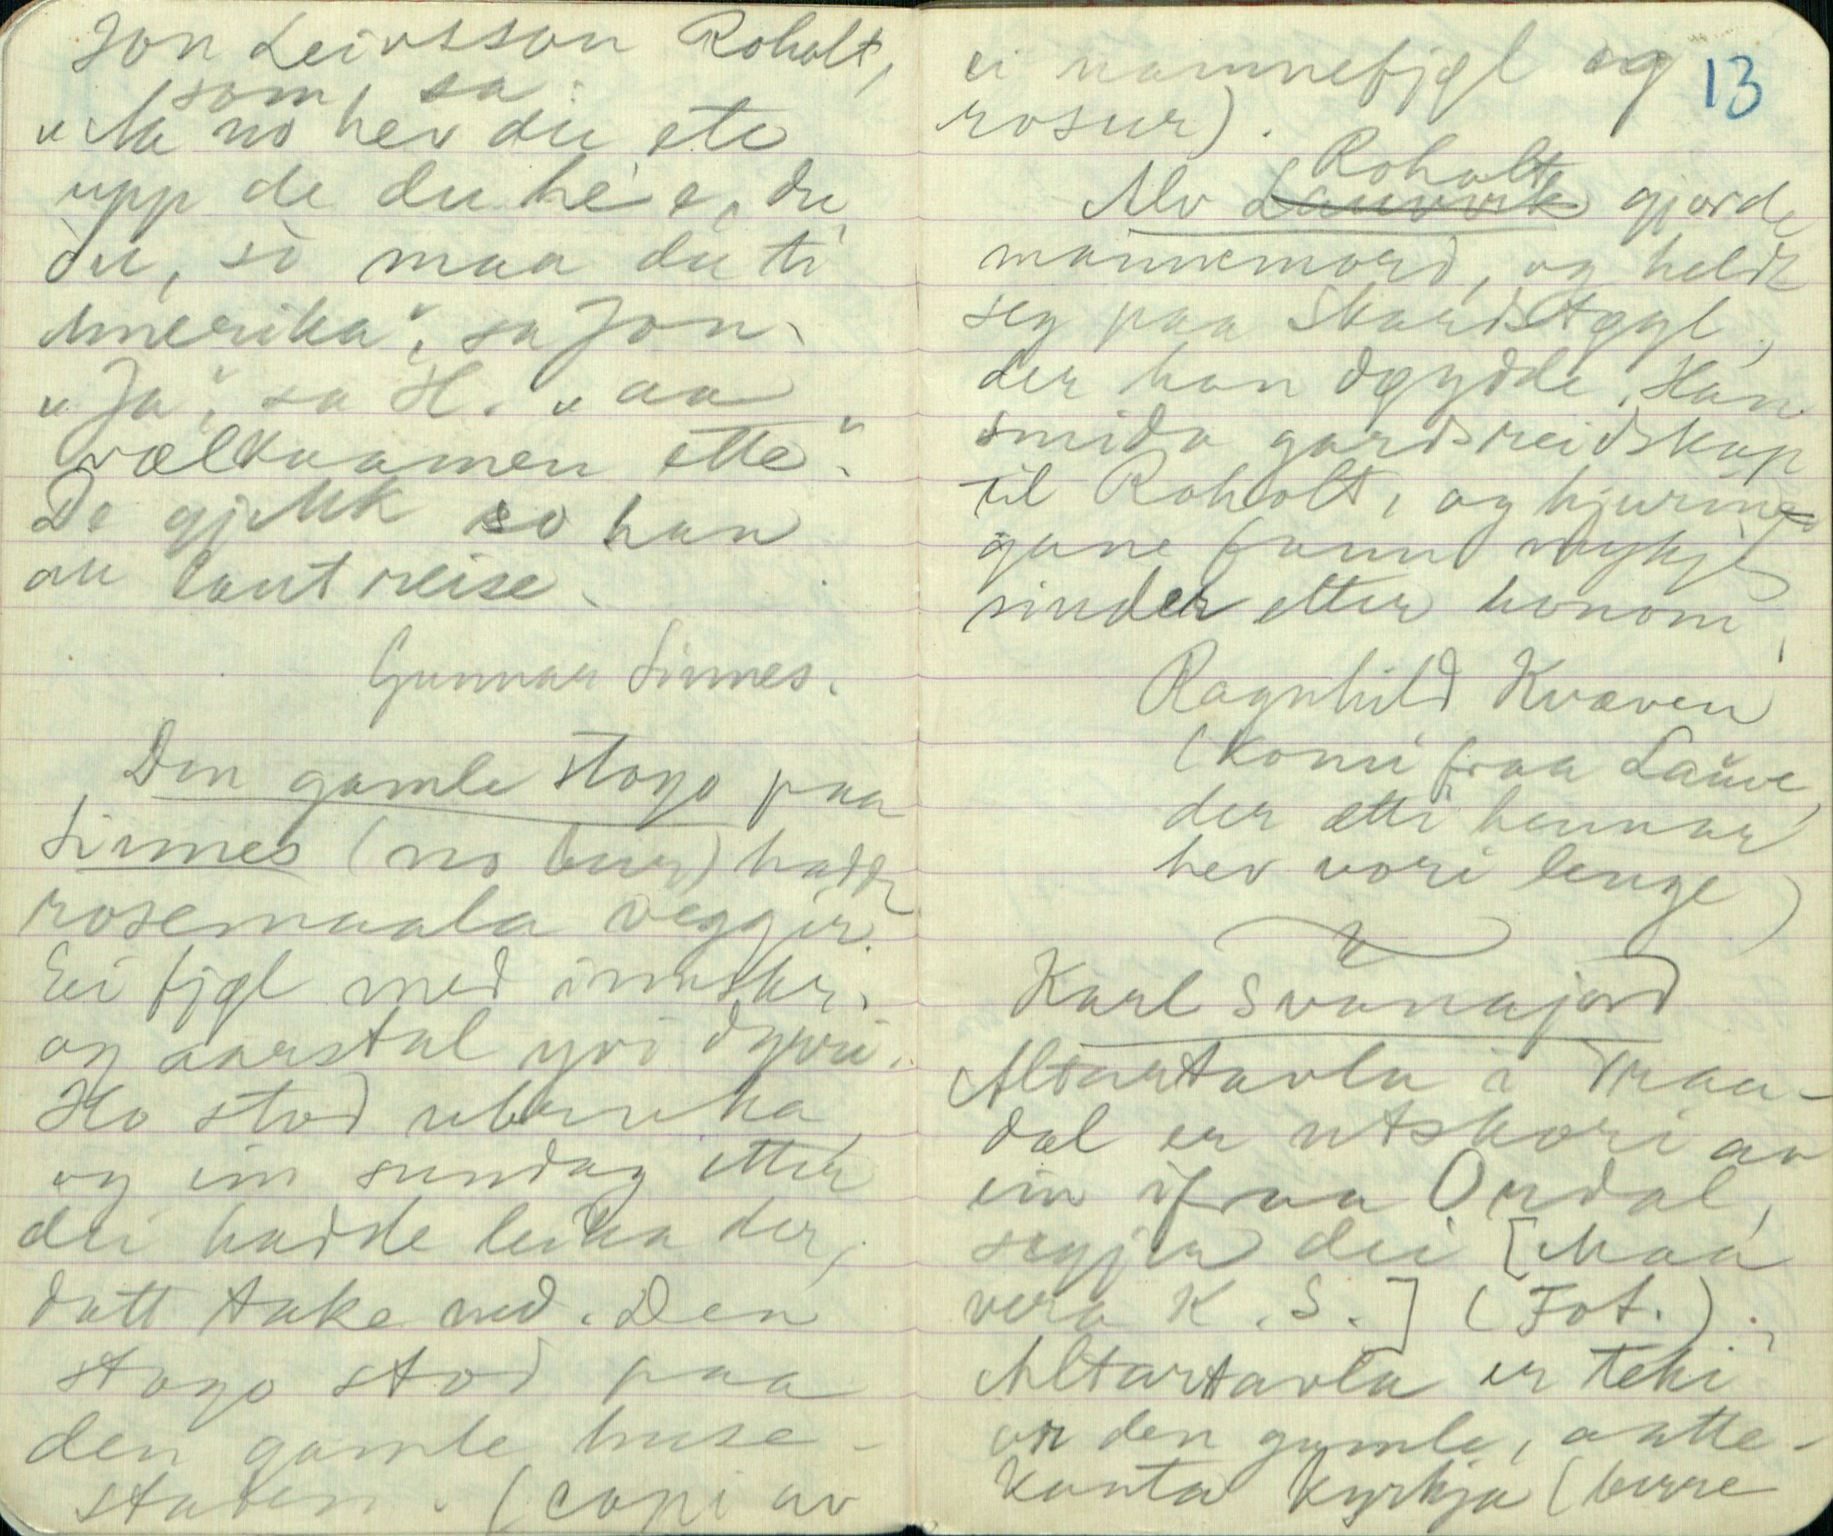 Jon Leivsson Roholt,
som sa:
"Aa no hev du ete
upp de du he'e, du,
du, so maa du ti
Amerika", sa Jon.
"Ja", sa H. "aa
vælkaamen ette".
De gjekk so han
au laut reise.
Gunnar Sinnes.
Den gamle stogo paa
Sinnes (no bur) hadde
rosemaala veggjir.
Ei fjøl med innskr.
og aarstal yvi dynni.
Ho stod ubruka
og ein sundag etter
dei hadde leika der,
datt take ned. Den
stogo stod paa
den gamle huse-
staden. (copi av
13
ei namnefjøl og
rosur).
Roholt
Alv Lauvvik gjorde
mannemord, og heldt
seg paa Skardstøyl,
der han døydde. Han
smida gardsreidskap
til Roholt, og hjurin-
gane fann mykje
sinder etter honom
Ragnhild Kvaven
(komi fraa Lauve,
der ætti hennar
hev vori lenge)
Karl Svanajord
Altartavla i Traa-
dal er utskori av
ein ifraa Ordal,
segjer dei [Maa
vera K. S.] (Fot.).
Altartavla er teki
or den gamle, aatte-
kanta kyrkja (burre